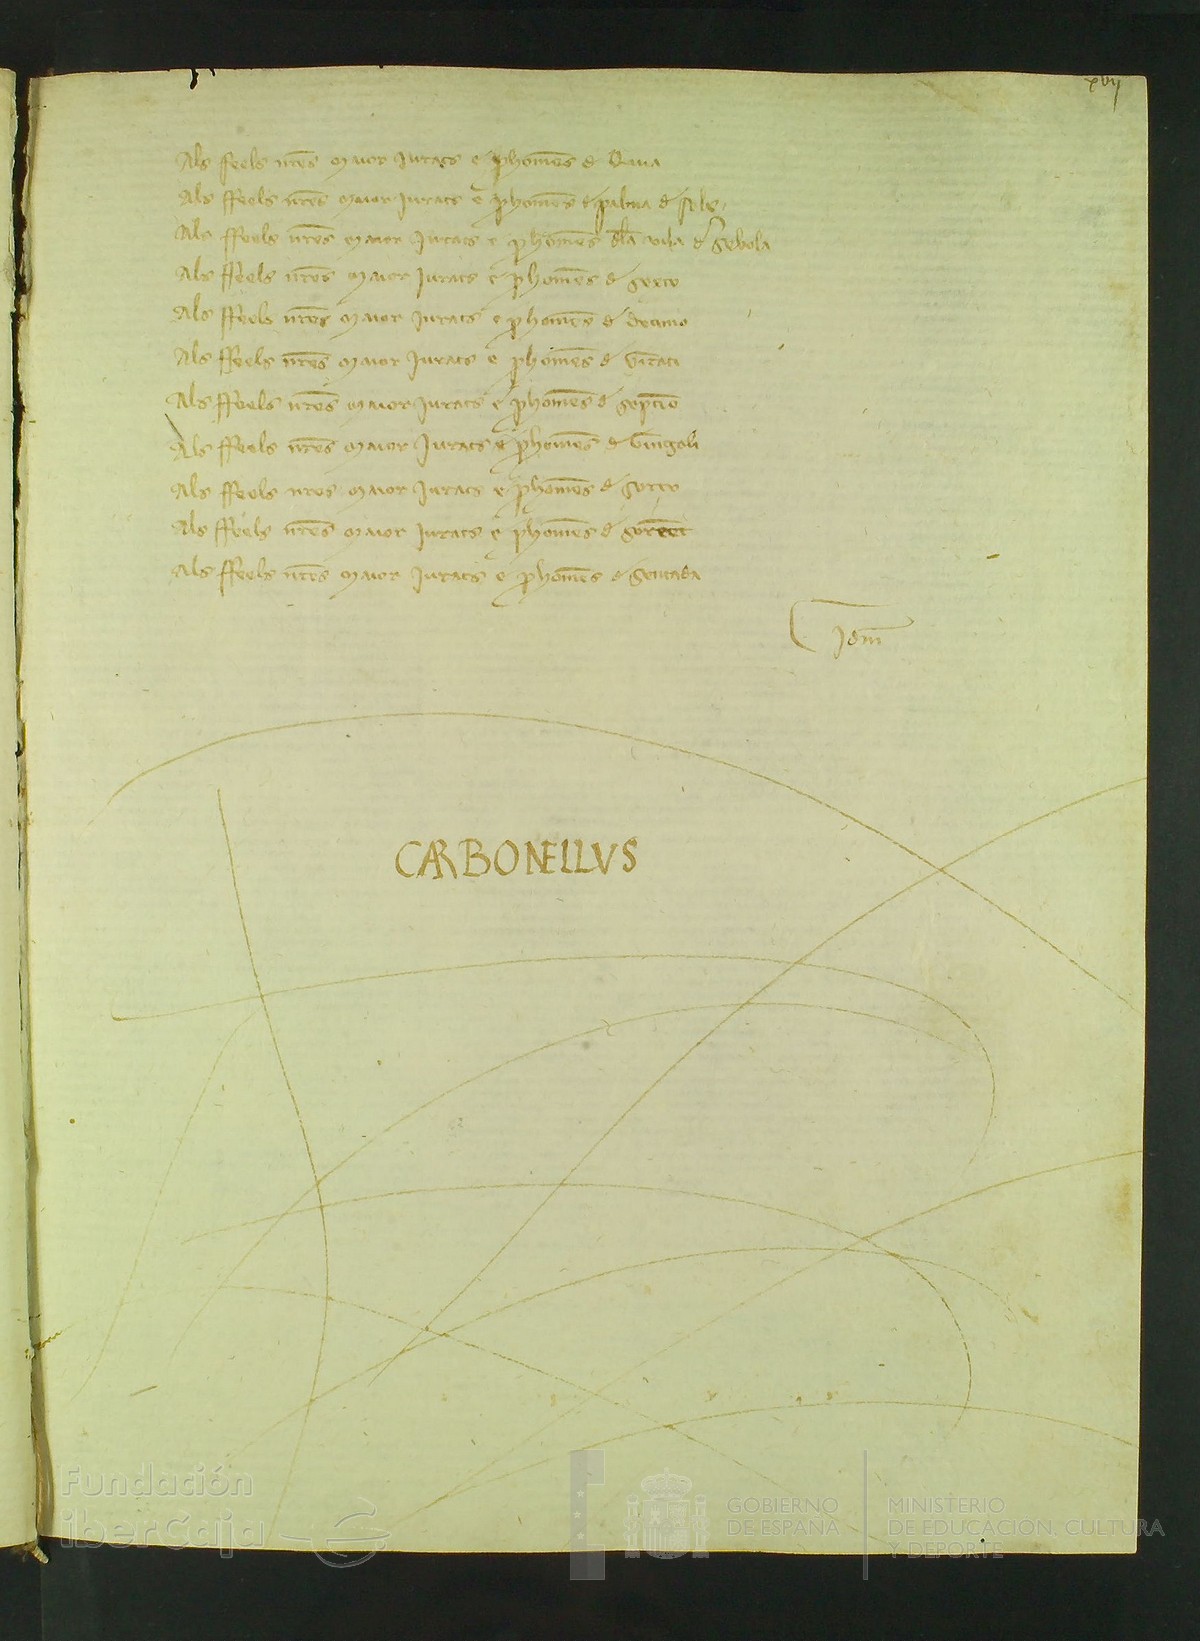 xvij
Als feels nres maior Jurats e phomēs d
Als ffeels nres maior Jurats e phomēs d palma d sols
Als ffeels nres maior Jurats e phomēs dla vila d
Als ffeels nres maior Jurats e phomēs d
Als ffeels nres maior Jurats e phomēs d decimo
Als ffeels nres maior Jurats e phomēs d
Als ffeels nres maior Jurats e phomēs d
Als ffeels nres maior Jurats e phomēs d
Als ffeels nres maior Jurats e phomēs d
Als ffeels nres maior Jurats e phomēs d
Als ffeels nres maior Jurats e phomēs d
Idm
CARBONELLVS
Fundación
iberCaja
GOBIERNO
DE ESPAÑA
MINISTERIO
DE EDUCACIÓN, CULTURA
Y DEPORTE